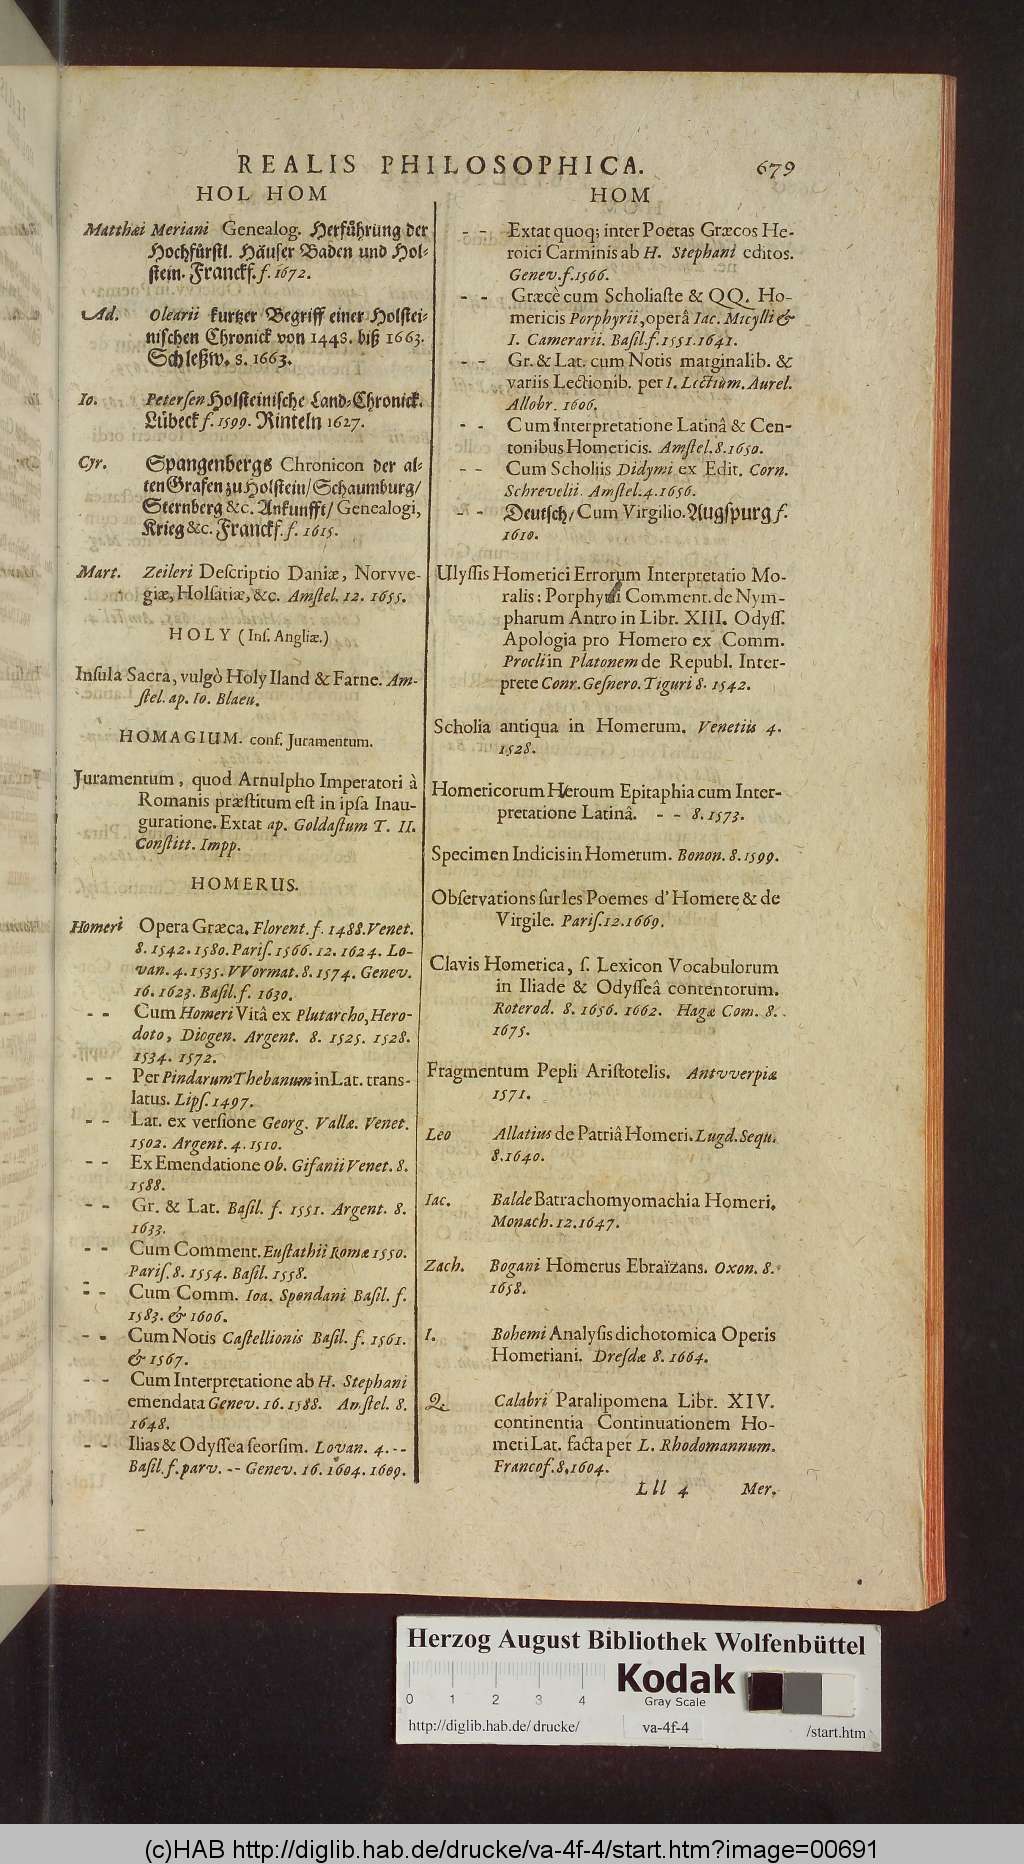 REALIS PHILOSOPHICA. 679
HOL HOM
Matthæi Meriani Genealog. Herführung der
Hochfürstl. Häuser Baden und Hol-
stein. Franckf. f. 1672.
Ad. Olearii kurtzer Begriff einer Holstei-
nischen Chronick von 1448. biß 1663.
Schleßw. 8. 1663.
Io. Petersen Holsteinische Land-Chronick.
Lübeck f. 1599. Rinteln 1627.
Cyr. Spangenbergs Chronicon der al-
ten Grafen zu Holstein/Schaumburg/
Sternberg &c. Ankunfft/ Genealogi,
Krieg &c. Franckf. f. 1615.
Mart. Zeileri Descriptio Daniæ, Norvve-
giæ, Holsatiæ, &c. Amstel. 12. 1655.
HOLY (Ins. Angliæ.)
Insula Sacra, vulgò Holy Iland & Farne. Am-
stel. ap. Io. Blaeu.
HOMAGIUM. conf. Juramentum.
Juramentum, quod Arnulpho Imperatori à
Romanis præstitum est in ipsa Inau-
guratione. Extat ap. Goldastum T. II.
Constitt. Impp.
HOMERUS.
Homeri Opera Græca. Florent. f. 1488. Venet.
8. 1542. 1580. Paris. 1566. 12. 1624. Lo-
van. 4. 1535. VVormat. 8. 1574. Genev.
16. 1623. Basil. f. 1630.
- - Cum Homeri Vitâ ex Plutarcho, Hero-
doto, Diogen. Argent. 8. 1525. 1528.
1534. 1572.
- - Per Pindarum Thebanum in Lat. trans-
latus. Lips. 1497.
- - Lat. ex versione Georg. Vallæ. Venet.
1502. Argent. 4. 1510.
- - Ex Emendatione Ob. Gifanii Venet. 8.
1588.
- - Gr. & Lat. Basil. f. 1551. Argent. 8.
1633.
- - Cum Comment. Eustathii Romæ 1550.
Paris. 8. 1554. Basil. 1558.
- - Cum Comm. Ioa. Spondani Basil. f.
1583. & 1606.
- - Cum Notis Castellionis Basil. f. 1561.
& 1567.
- - Cum Interpretatione ab H. Stephani
emendata Genev. 16. 1588. Amstel. 8.
1648.
- - Ilias & Odyssea seorsim. Lovan. 4. --
Basil. f. parv. -- Genev. 16. 1604. 1609.
HOM
- - Extat quoq; inter Poetas Græcos He-
roici Carminis ab H. Stephani editos.
Genev. f. 1566.
- - Græcè cum Scholiaste & QQ. Ho-
mericis Porphyrii, operâ Iac. Micylli &
I. Camerarii. Basil. f. 1551. 1641.
- - Gr. & Lat. cum Notis marginalib. &
variis Lectionib. per I. Lectium. Aurel.
Allobr. 1606.
- - Cum Interpretatione Latinâ & Cen-
tonibus Homericis. Amstel. 8. 1650.
- - Cum Scholiis Didymi ex Edit. Corn.
Schrevelii Amstel. 4. 1656.
- - Deutsch/ Cum Virgilio. Augspurg f.
1610.
Ulyssis Homerici Errorum Interpretatio Mo-
ralis: Porphyrii Comment. de Nym-
pharum Antro in Libr. XIII. Odyss.
Apologia pro Homero ex Comm.
Procli in Platonem de Republ. Inter-
prete Conr. Gesnero. Tiguri 8. 1542.
Scholia antiqua in Homerum. Venetiis 4.
1528.
Homericorum Heroum Epitaphia cum Inter-
pretatione Latinâ. - - 8. 1573.
Specimen Indicis in Homerum. Bonon. 8. 1599.
Observations sur les Poemes d' Homere & de
Virgile. Paris. 12. 1669.
Clavis Homerica, s. Lexicon Vocabulorum
in Iliade & Odysseâ contentorum.
Roterod. 8. 1656. 1662. Hagæ Com. 8.
1675.
Fragmentum Pepli Aristotelis. Antvverpiæ
1571.
Leo Allatius de Patriâ Homeri. Lugd. Sequ.
8. 1640.
Iac. Balde Batrachomyomachia Homeri.
Monach. 12. 1647.
Zach. Bogani Homerus Ebraïzans. Oxon. 8.
1658.
I. Bohemi Analysis dichotomica Operis
Homeriani. Dresdæ 8. 1664.
Q. Calabri Paralipomena Libr. XIV.
continentia Continuationem Ho-
meri Lat. facta per L. Rhodomannum.
Francof. 8. 1604.
Lll 4 Mer.
Herzog August Bibliothek Wolfenbüttel
Kodak
Gray Scale
0 1 2 3 4
http://diglib.hab.de/drucke/ va-4f-4 /start.htm
(c)HAB http://diglib.hab.de/drucke/va-4f-4/start.htm?image=00691